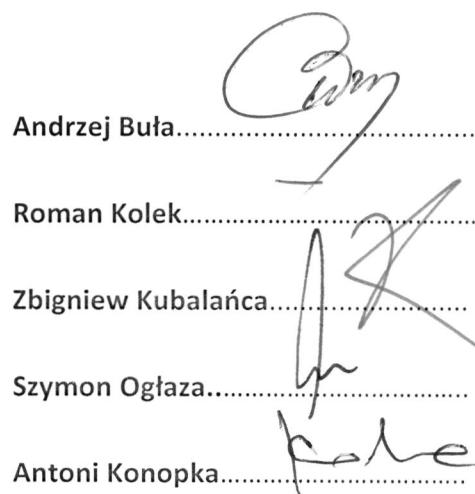 Andrzej Buła....................................
Roman Kolek....................................
Zbigniew Kubalańca.........................
Szymon Ogłaza.................................
Antoni Konopka...............................